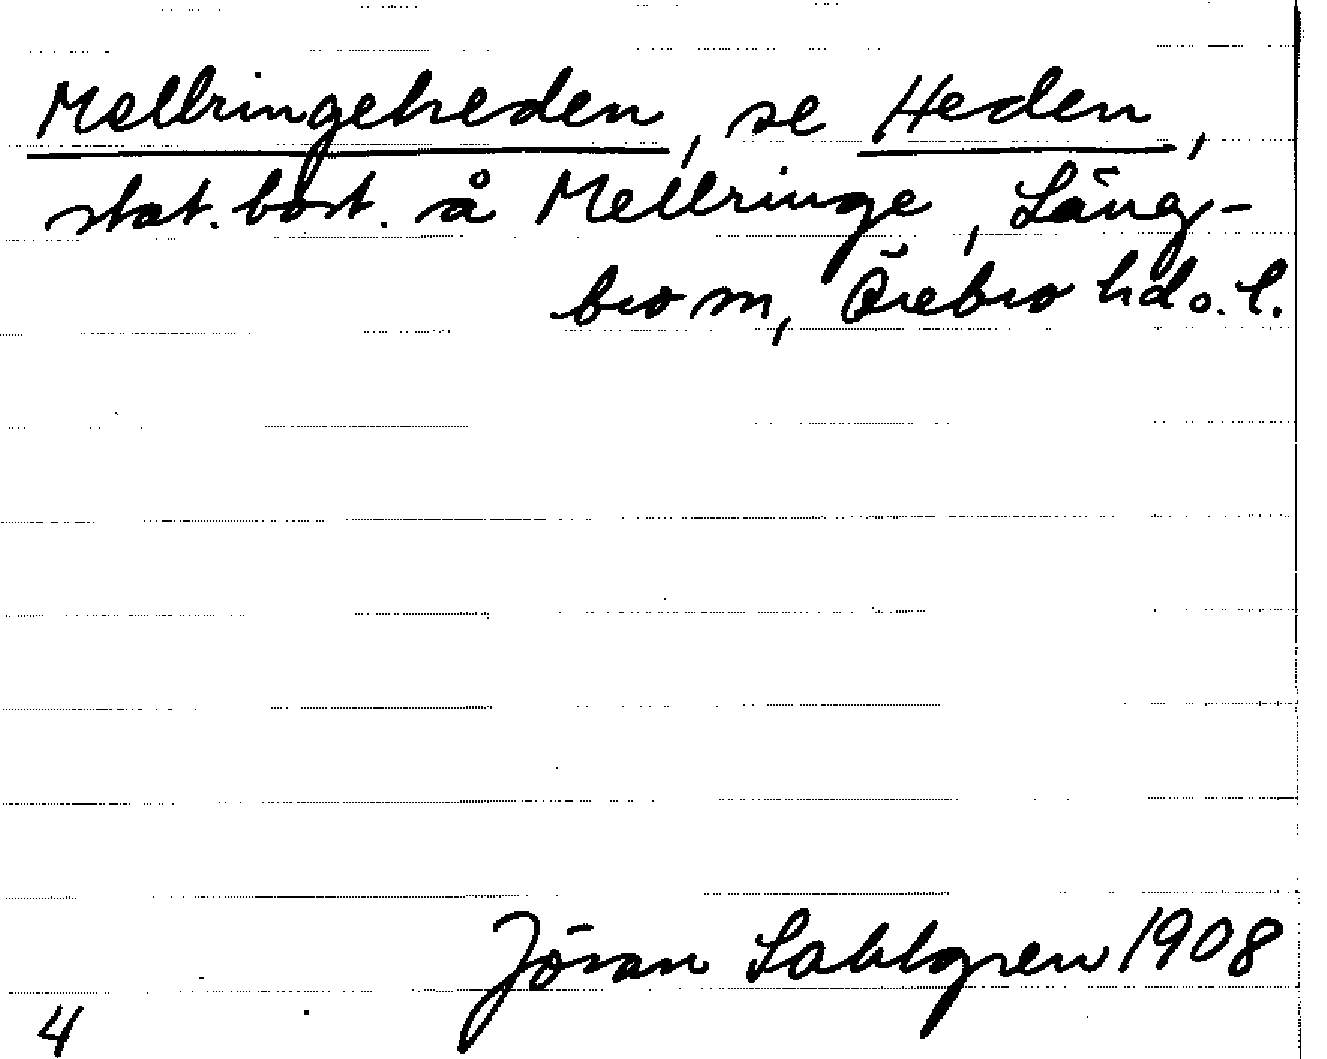 Mellringeheden, se Heden,
stat. bost. å Mellringe, Läng-
bro sn, Örebro hd o. l.
Jöran Sahlgren 1908
4